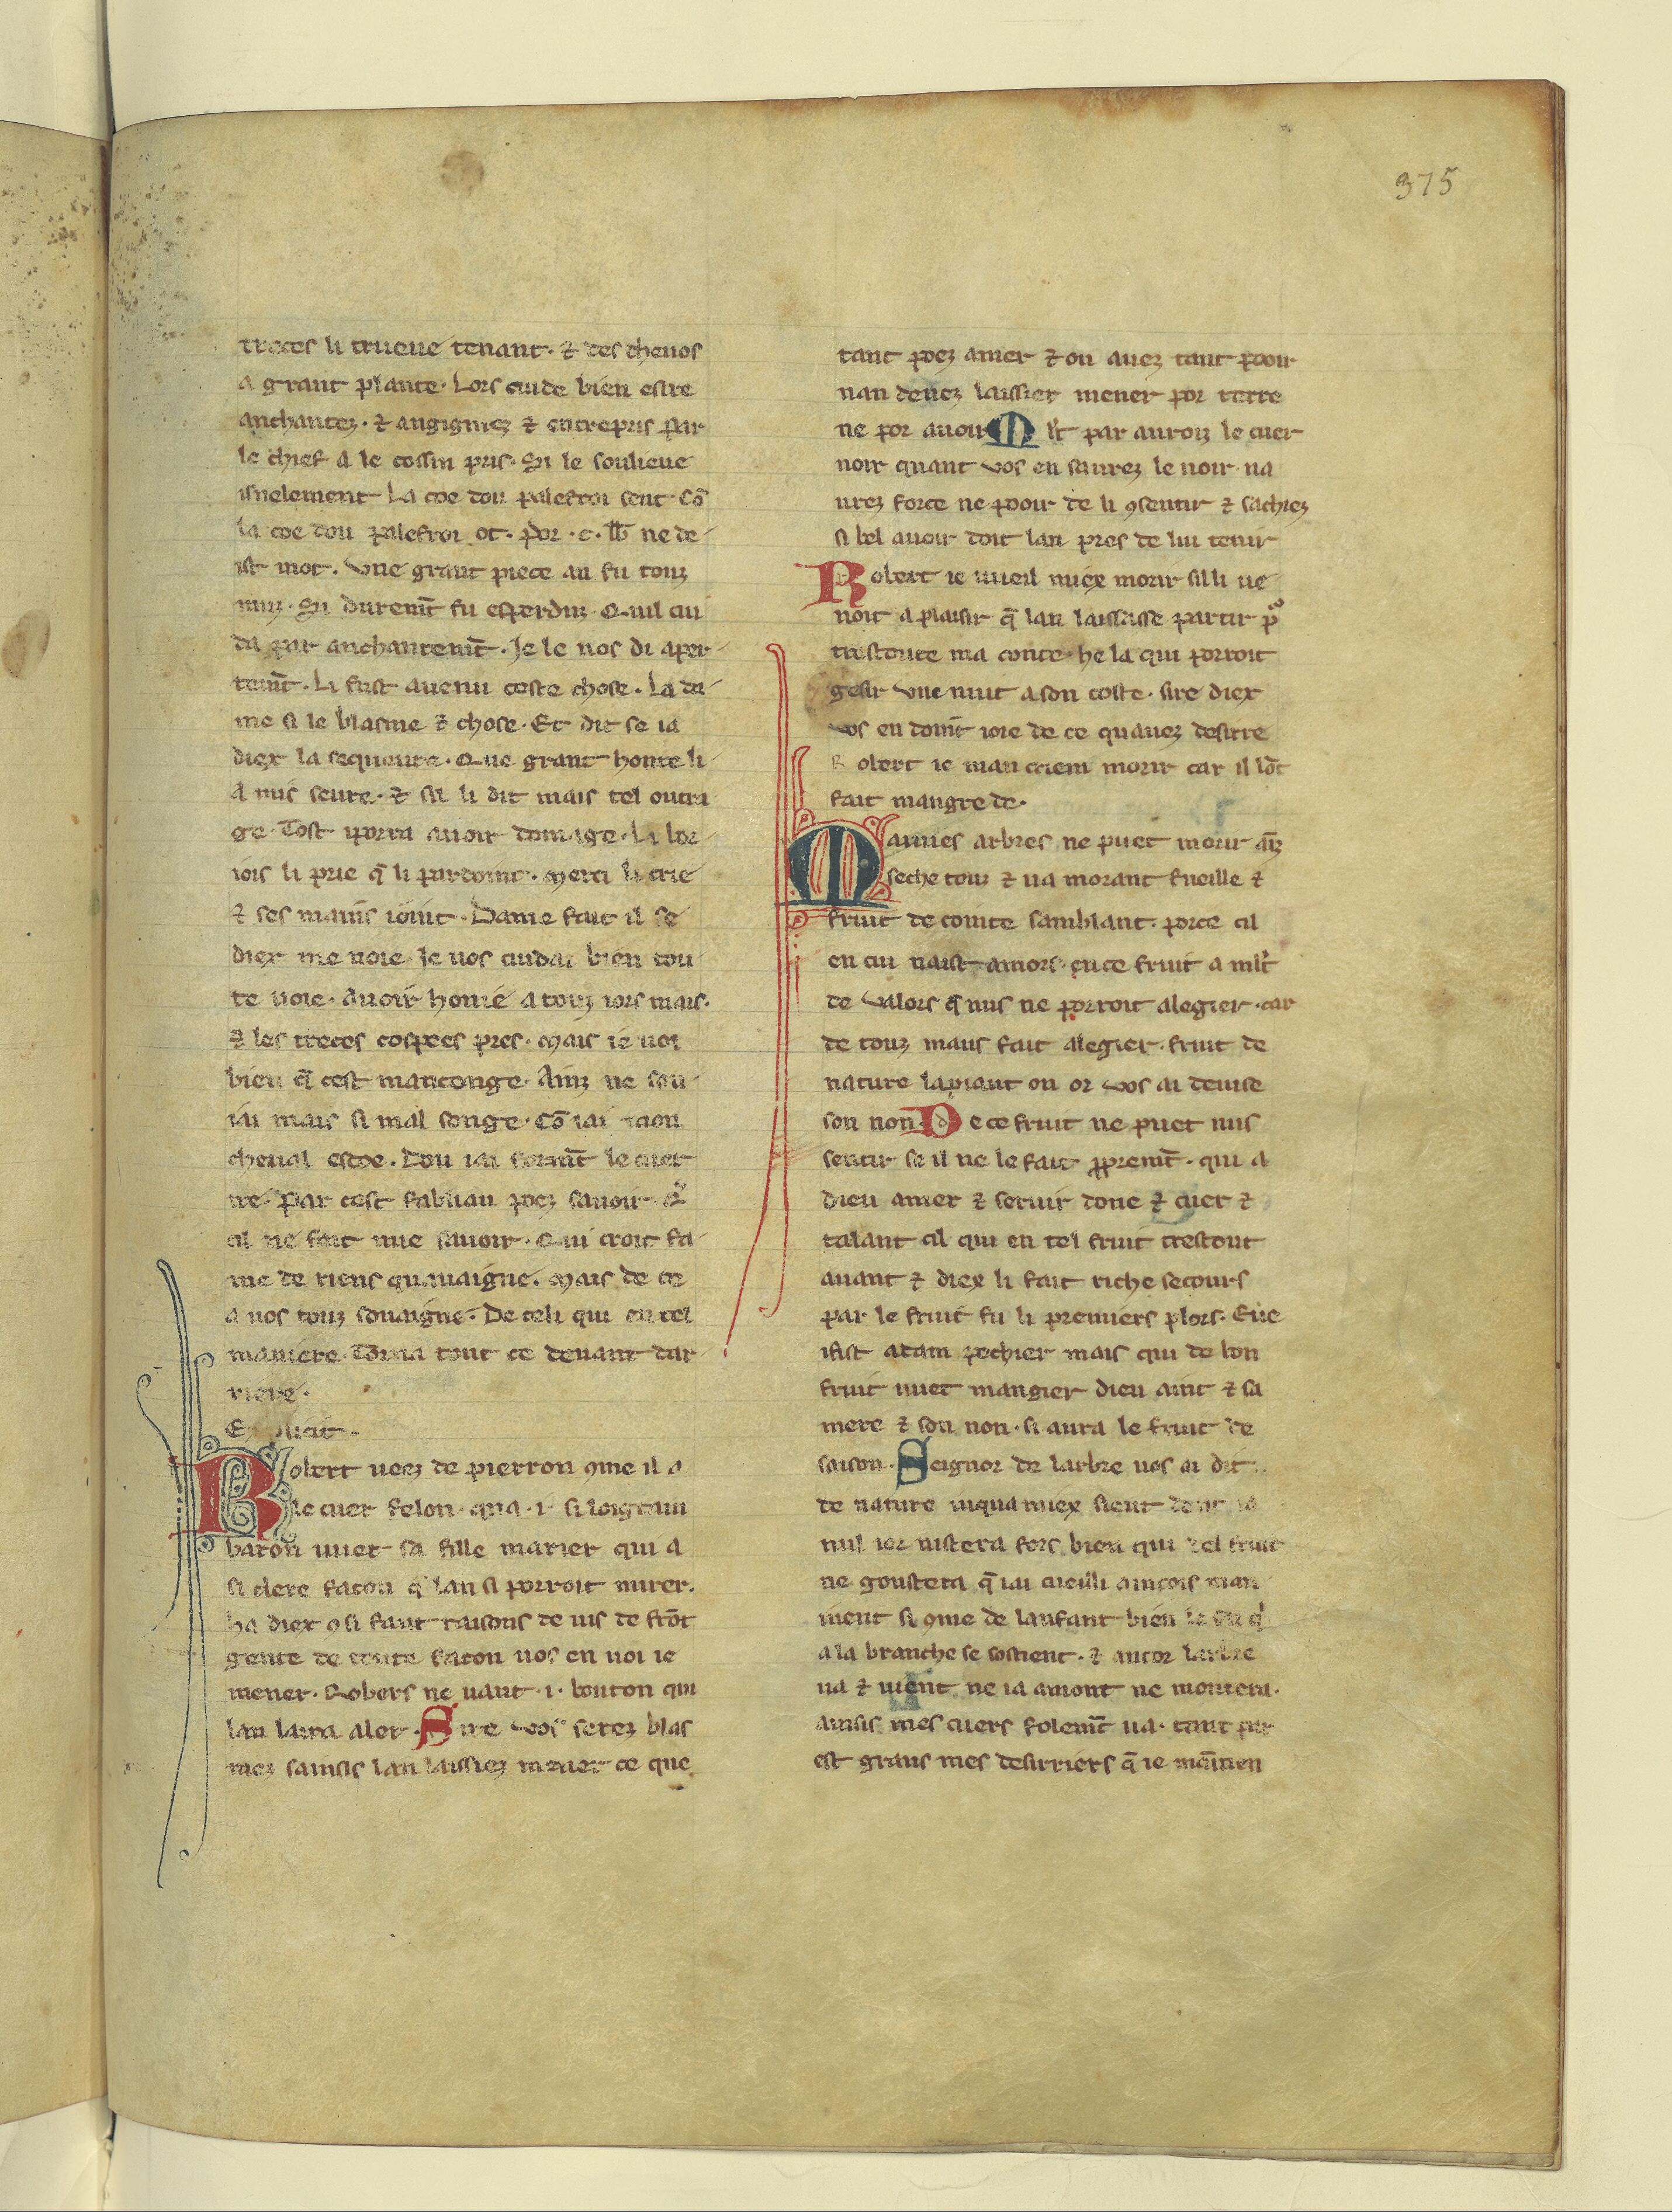 375
treces li trueue tenant · ⁊ des cheuos
a grant plante · Lors cuide bien estre
anchantez · ⁊ angigniez ⁊ entrepris par
le chief a le cossin pris · Si le soulieue
isnelement La coe dou palefroi sent · Cō
la coe dou palefroi ot · por · c · lb̄ ne de
ist mot · vne grant piece an fu touz
muz · Si duremt̄ fu esperduz · Quil cui
da par anchantemt̄ · Je le uos di aper
temt̄ · Li fust auenu ceste chose · La da
me si le blasme ⁊ chose · Et dit se ia
diex la sequeure · Que grant honte li
a mis seure · ⁊ sil li dit mais tel outra
ge · Tost porra auoir domage · Li bor
iois li prie q̄ li pardoint · merci li crie
⁊ ses mains ioint · Dame fait il se
diex me uoie Je uos cuidai bien tou
te uoie · Auoir honie a touz iors mais ·
⁊ les treces copees pres · Mais ie uoi
bien q̄ cest mançonge · Ainz ne son
iai mais si mal songe · Cō iai mon
cheual escoe · Dou iai formt̄ le cuer
ire · Par cest fabliau poez sauoir · Q̄
cil ne fait mie sauoir · Qui croit fa
me de riens quauaigne · Mais de ce
a uos touz souaigne · De celi qui en tel
maniere · Torna tout ce deuant dar
riere ·
Explicit ·
Robert ueez de pierron ꝯme il a
le cuer felon · qua · i · si loigtain
baron uuet sa fille marier qui a
si clere facon q̄ lan si porroit mirer ·
ha diex ꝯ si faut raisons de uis de frōt
gente de toute facon uos en uoi ie
mener · Robers ne uaut · i · bouton qui
lan laira aler · Sire vos serez blas
mez sainsis lan laissiez mener ce que
tant poez amer ⁊ ou auez tant pooir
nan deuez laissier mener por terre
ne por auoir Mlt̄ par auroiz le cuer
noir quant vos en saurez le uoir · na
urez force ne pooir de li ꝯsentir ⁊ sachiez
si bel auoir doit lan pres de lui tenir
Robert ie uueil miex morir sil li ue
noit a plaisir q̄ lan laissasse partir p̄
trestoute ma conte · he la qui porroit
gesir vne nuit a son coste · sire diex
vos en doint ioie de ce quauez desirre
Robert ie man criem morir car il lōt
fait maugre de ·
Mauues arbres ne puet morir āz
seche touz ⁊ ua morant fueille ⁊
fruit de cointe samblant · porce cil
en cui naist amors · en ce fruit a mlt̄
de valors q̄ nus ne porroit alegier · car
de touz maus fait alegier · fruit de
nature lapiaut on or vos ai deuise
son non De ce fruit ne puet nus
sentir se il ne le fait ꝓpremt̄ · qui a
dieu amer ⁊ seruir done ⁊ cuer ⁊
talant cil qui en tel fruit trestout
auant ⁊ diex li fait riche secours
par le fruit fu li premiers plors · Eue
ifist adam pechier mais qui de bon
fruit uuet mangier dieu aint ⁊ sa
mere ⁊ son non · si aura le fruit de
saison · Seignor de larbre uos ai dit
de nature iuqua miex sient dont ia
nul ior nistera fors bien qui tel fruit
ne goustera q̄ iai cueilli aincois man
ment si ꝯme de lanfant bien le sai q̄
a la branche se sostient · ⁊ antor larbre
ua ⁊ uient ne ia amont ne montera ·
ainsis mes cuers folemt̄ ua · tant par
est grans mes desirriers q̄ ie